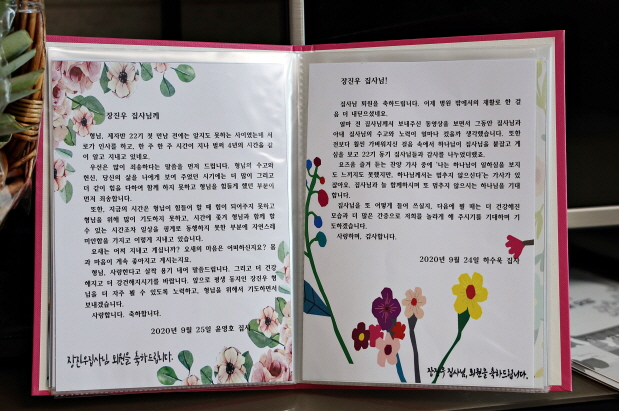 장진우 집사님께
형님, 제자반 22기 첫 만남 전에는 알지도 못하는 사이였는데 서
로가 인사를 하고, 한 주 한 주 시간이 지나 벌써 4년의 시간을 같
이 알고 지내고 있네요.
우선은 많이 죄송하다는 말씀을 먼저 드립니다. 형님의 수고와
헌신, 당신의 삶을 나에게 보여 주었던 시기에는 더 많이 그리고
더 깊이 힘을 다하여 함께 하지 못하고 형님을 힘들게 했던 부분이
먼저 죄송합니다.
또한, 지금의 시간은 형님이 힘들어 할 때 힘이 되어주지 못하고
형님을 위해 많이 기도하지 못하고, 시간에 쫓겨 형님과 함께 할
수 있는 시간조차 일상을 핑계로 동행하지 못한 부분에 자연스레
미안함을 가지고 이렇게 지내고 있습니다.
요새는 어찌 지내고 계십니까? 오늘의 마음은 어떠하신지요? 몸
과 마음이 계속 좋아지고 계시는지요.
형님, 사랑한다고 살짝 용기 내어 말씀드립니다. 그리고 더 건강
해지고 더 강건해지시기를 바랍니다. 앞으로 평생 동지인 장진우 형
님을 더 자주 뵐 수 있도록 노력하고, 형님을 위해서 기도하면서
보내겠습니다.
사랑합니다. 축하합니다.
2020년 9월 25일 윤영호 집사
장진우집사님, 퇴원을 축하드립니다.
장진우 집사님!
집사님 퇴원을 축하드립니다. 이제 병원 밖에서의 재활로 한 걸
음 더 내딛으셨네요.
얼마 전 집사님께서 보내주신 동영상을 보면서 그동안 집사님과
아내 집사님의 수고와 노력이 얼마나 컸을까 생각했습니다. 또한
전보다 훨씬 가벼워지신 걸음 속에서 하나님이 집사님을 붙잡고 계
심을 보고 22기 동기 집사님들과 감사를 나누었더랬죠.
요즈음 즐겨 듣는 찬양 가사 중에 '나는 하나님이 일하심을 보지
도 느끼지도 못했지만, 하나님께서는 멈추지 않으신다'는 가사가 있
잖아요. 집사님과 늘 함께하시며 또 멈추지 않으시는 하나님을 기대
합니다.
집사님을 또 어떻게 들어 쓰실지, 다음에 뵐 때는 더 건강해진
모습과 더 많은 간증으로 저희를 놀라게 해 주시기를 기대하며 기
도하겠습니다.
사랑하며, 감사합니다.
2020년 9월 24일 하수욱 집사
장진우 집사님, 퇴원을 축하드립니다.